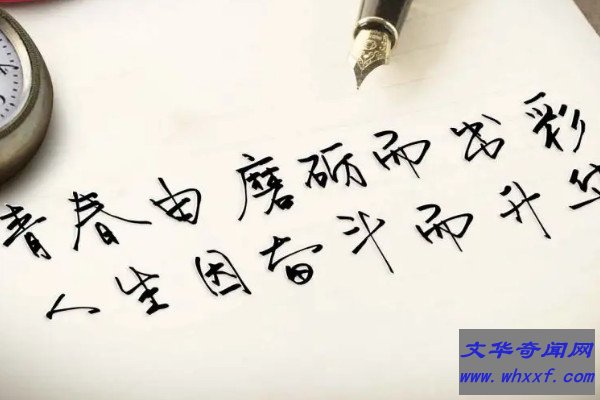 青春由磨砺而出彩
人生因奋斗而升华
文华奇闻网
www.whxxf.com